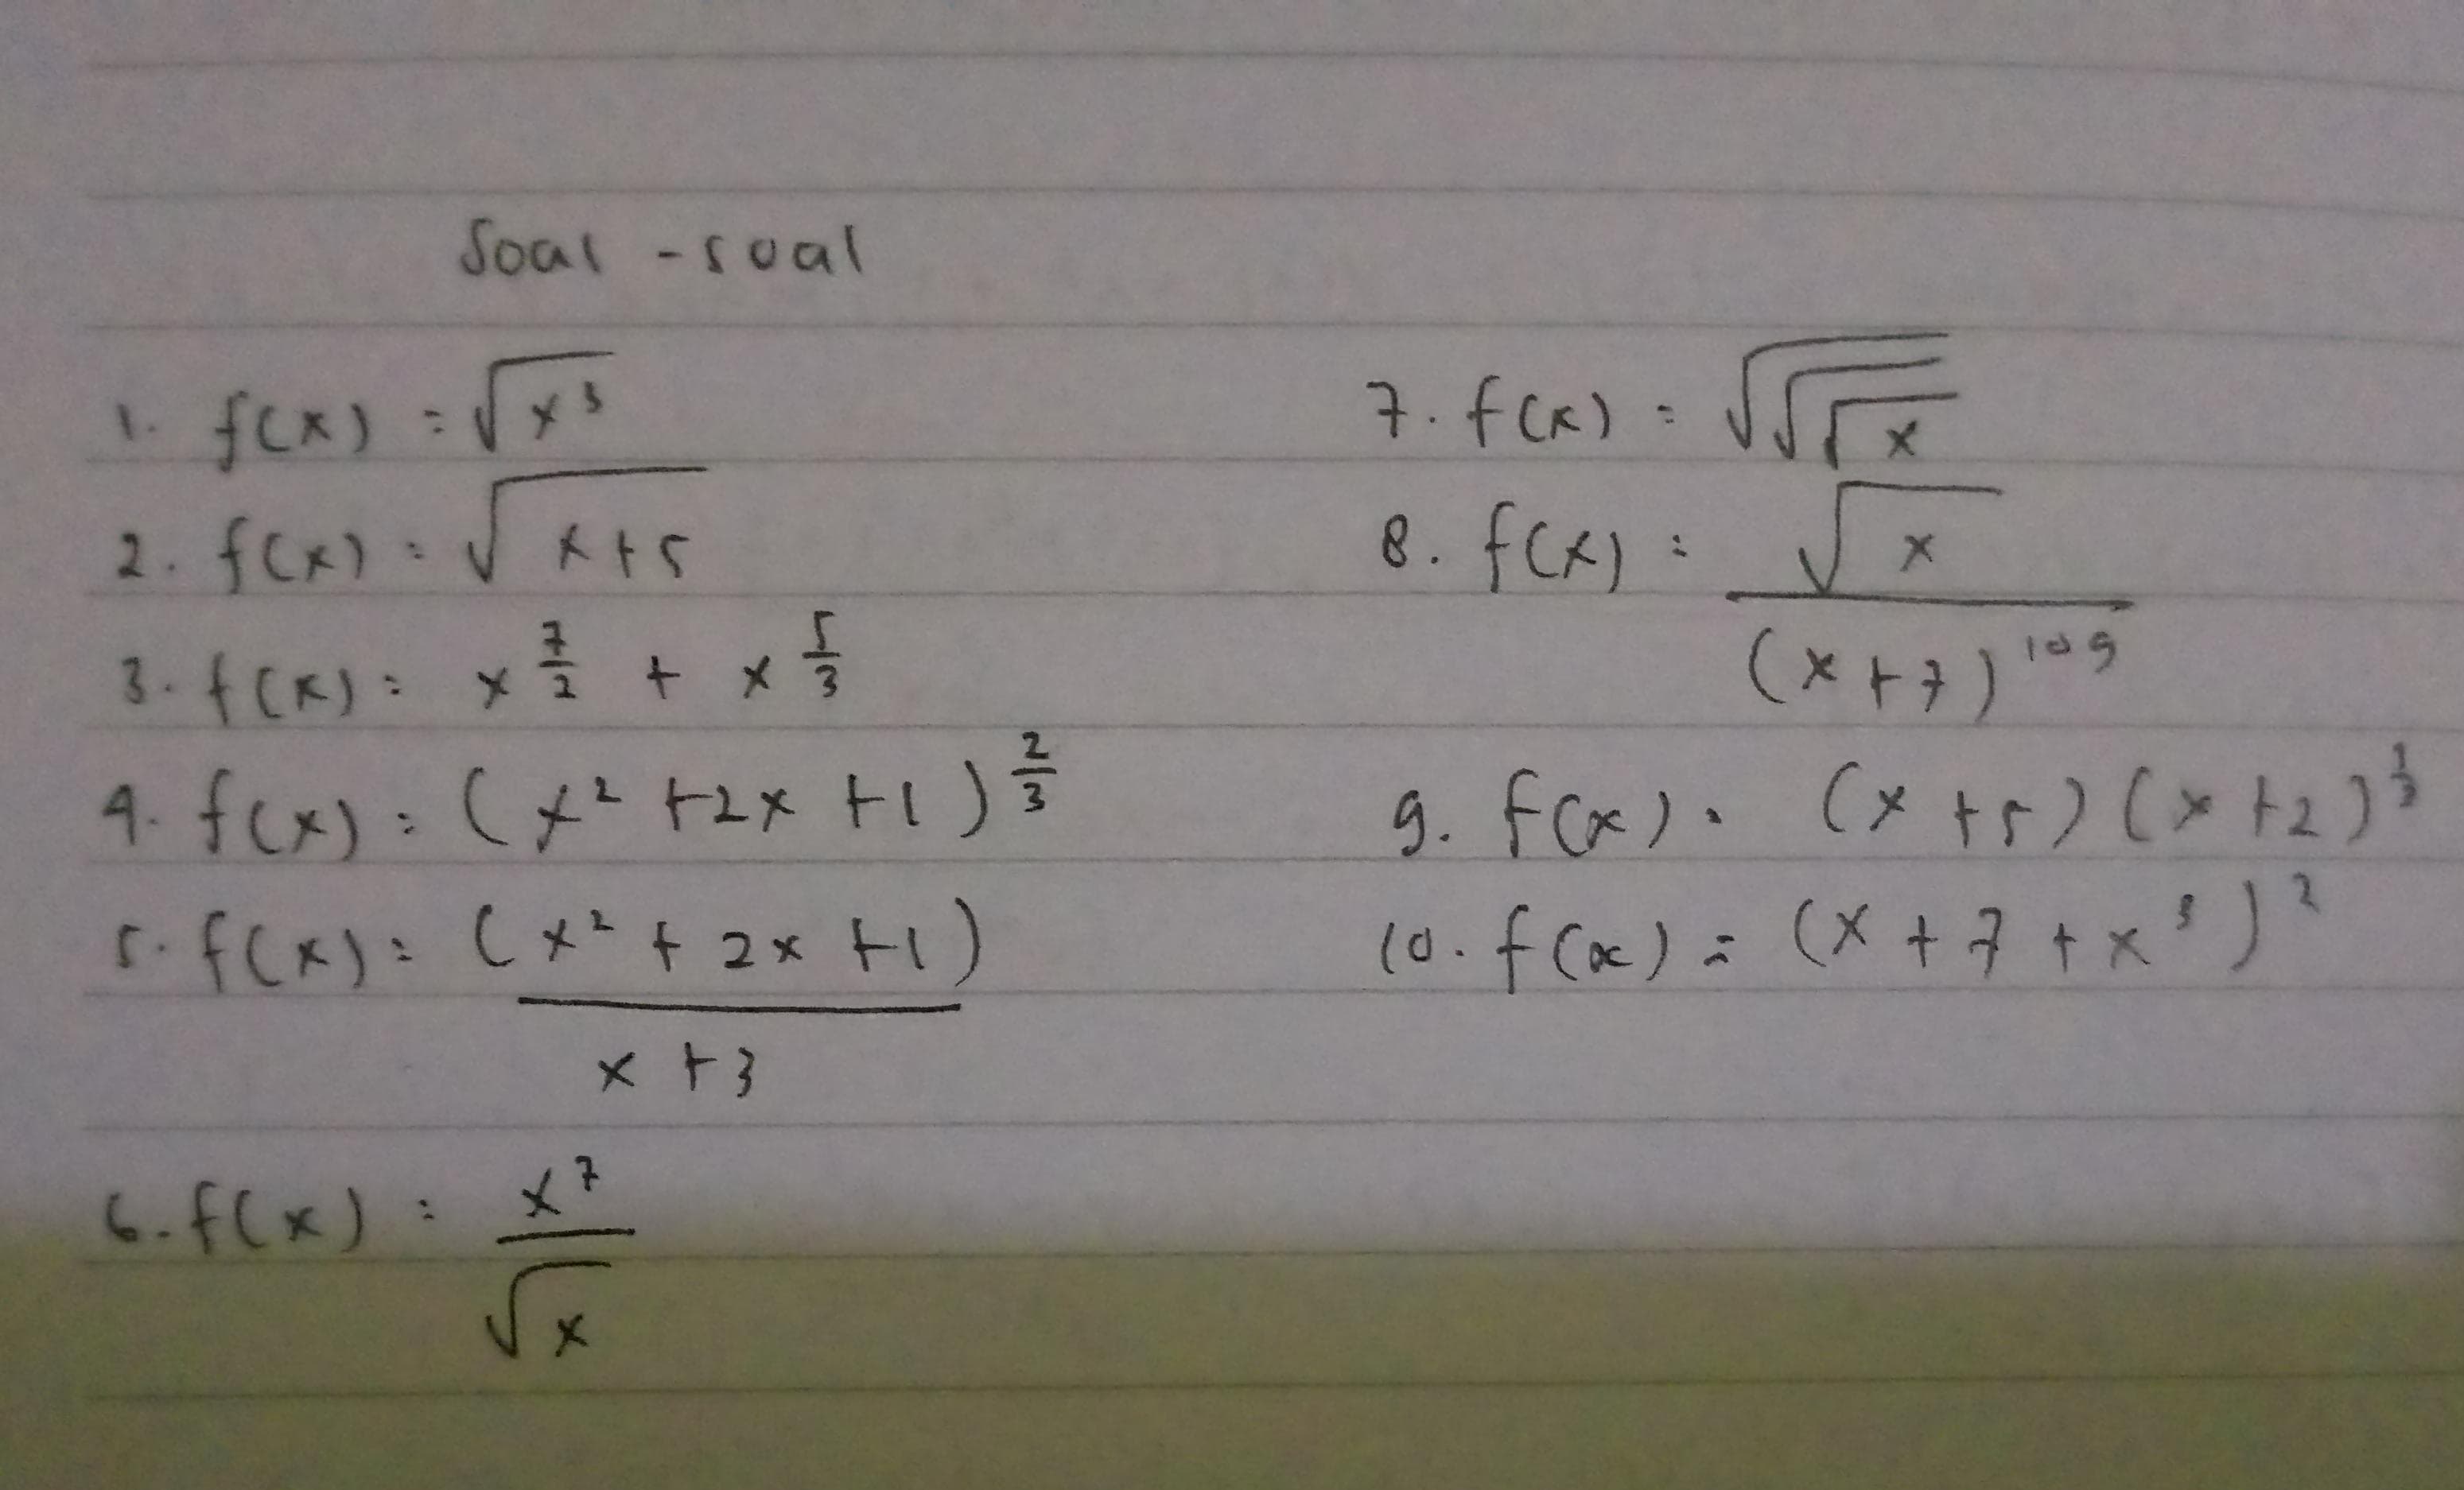 Soal - soal
1. f(x) = √x³
2. f(x) = √x+5
3. f(x) = x^(7/2) + x^(5/3)
4. f(x) = (x² + 2x + 1)^(2/3)
5. f(x) = (x² + 2x + 1)
x + 3
6. f(x) = x⁷
√x
7. f(x) = √√√x
8. f(x) = √x
(x + 7)¹⁰⁹
9. f(x) = (x + 5)(x + 2)^(1/3)
10. f(x) = (x + 7 + x³)²